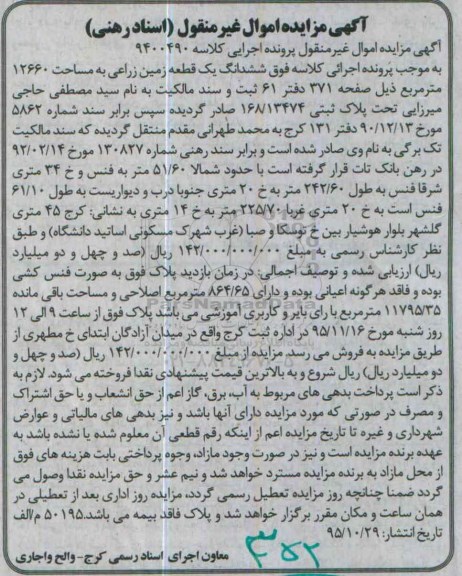 آگهی مزایده اموال غیر منقول (اسناد رهنی)
آگهی مزایده اموال غیر منقول پرونده اجرایی کلاسه ۹۴۰۰۴۹۰
به موجب پرونده اجرائی کلاسه فوق ششدانگ یک قطعه زمین زراعی به مساحت ۱۲۶۶۰
مترمربع ذیل صفحه ۳۷۱ دفتر ۶۱ ثبت و سند مالکیت به نام سید مصطفی حاجی
میرزایی تحت پلاک ثبتی ۱۶۸/۱۳۴۷۴ صادر گردیده سپس برابر سند شماره ۵۸۶۲
مورخ ۹۰/۱۲/۱۳ دفتر ۱۳۱ کرج به محمد طهرانی مقدم منتقل گردیده که سند مالکیت
تک برگی به نام وی صادر شده است و برابر سند رهنی شماره ۱۳۰۸۲۷ مورخ ۹۲/۰۲/۱۴
در رهن بانک تات قرار گرفته است با حدود شمالا ۵۱/۶۰ متر به فنس و خ ۳۴ متری
شرقا فنس به طول ۲۴۲/۶۰ متر به خ ۲۰ متری جنوبا درب و دیواریست به طول ۶۱/۱۰
فنس است به خ ۲۰ متری غربا ۲۲۵/۷۰ متر به خ ۱۴ متری به نشانی: کرج ۴۵ متری
گلشهر بلوار هوشیار بین خ توسکا و صبا (غرب شهرک مسکونی اساتید دانشگاه) و طبق
نظر کارشناس رسمی به مبلغ ۱۴۲/۰۰۰/۰۰۰/۰۰۰ ریال (صد و چهل و دو میلیارد
ریال) ارزیابی شده و توصیف اجمالی: در زمان بازدید پلاک فوق به صورت فنس کشی
بوده و فاقد هرگونه اعیانی بوده و دارای ۸۶۴/۶۵ مترمربع اصلاحی و مساحت باقی مانده
۱۱۷۹۵/۳۵ مترمربع با رای بایر و کاربری آموزشی می باشد پلاک فوق از ساعت ۹ الی ۱۲
روز شنبه مورخ ۹۵/۱۱/۱۶ در اداره ثبت کرج واقع در میدان آزادگان ابتدای خ مطهری از
طریق مزایده به فروش می رسد. مزایده از مبلغ ۱۴۲/۰۰۰/۰۰۰/۰۰۰ ریال (صد و چهل و
دو میلیارد ریال) ریال شروع و به بالاترین قیمت پیشنهادی نقدا فروخته می شود. لازم به
ذکر است پرداخت بدهی های مربوط به آب، برق، گاز اعم از حق انشعاب و یا حق اشتراک
و مصرف در صورتی که مورد مزایده دارای آنها باشد و نیز بدهی های مالیاتی و عوارض
شهرداری و غیره تا تاریخ مزایده اعم از اینکه رقم قطعی آن معلوم شده یا نشده باشد به
عهده برنده مزایده است و نیز در صورت وجود مازاد، وجوه پرداختی بابت هزینه های فوق
از محل مازاد به برنده مزایده مسترد خواهد شد و نیم عشر و حق مزایده نقدا وصول می
گردد ضمنا چنانچه روز مزایده تعطیل رسمی گردد، مزایده روز اداری بعد از تعطیلی در
همان ساعت و مکان مقرر برگزار خواهد شد و پلاک فاقد بیمه می باشد. ۵۰۱۹۵ م/الف
تاریخ انتشار: ۹۵/۱۰/۲۹
معاون اجرای اسناد رسمی کرج- والح واجاری
ParsNamadData